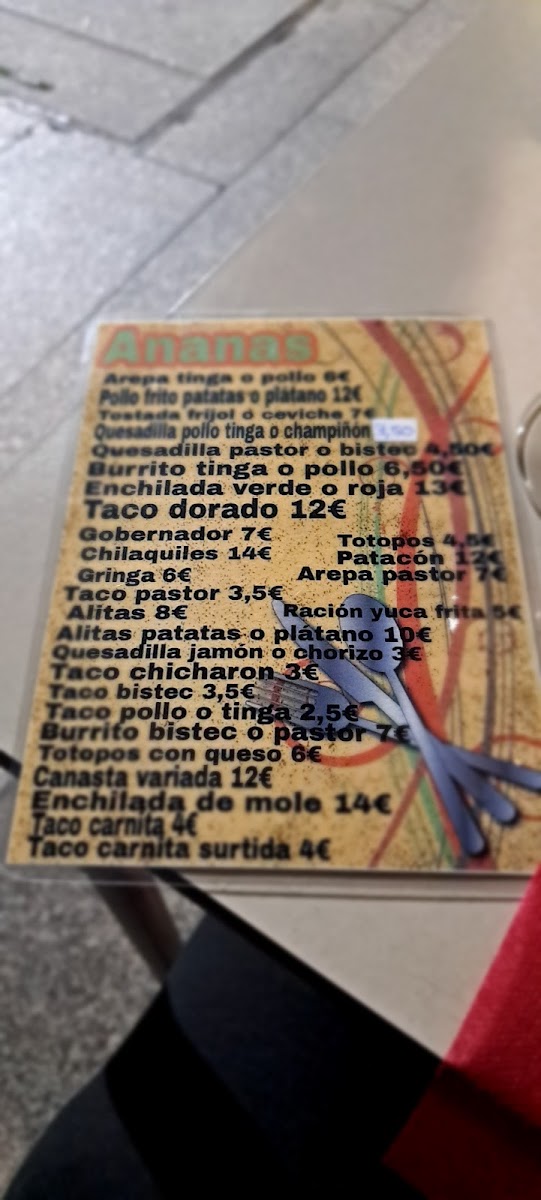 Ananas
Arepa tinga o pollo 6€
Pollo frito patatas o plátano 12€
Tostada frijol ó ceviche 7€
Quesadilla pollo tinga o champiñon 3,50
Quesadilla pastor o bistec 4,50€
Burrito tinga o pollo 6,50€
Enchilada verde o roja 13€
Taco dorado 12€
Gobernador 7€
Totopos 4,5€
Chilaquiles 14€
Patacón 12€
Gringa 6€
Arepa pastor 7€
Taco pastor 3,5€
Alitas 8€
Ración yuca frita 5€
Alitas patatas o plátano 10€
Quesadilla jamón o chorizo 3€
Taco chicharon 3€
Taco bistec 3,5€
Taco pollo o tinga 2,5€
Burrito bistec o pastor 7€
Totopos con queso 6€
Canasta variada 12€
Enchilada de mole 14€
Taco carnita 4€
Taco carnita surtida 4€